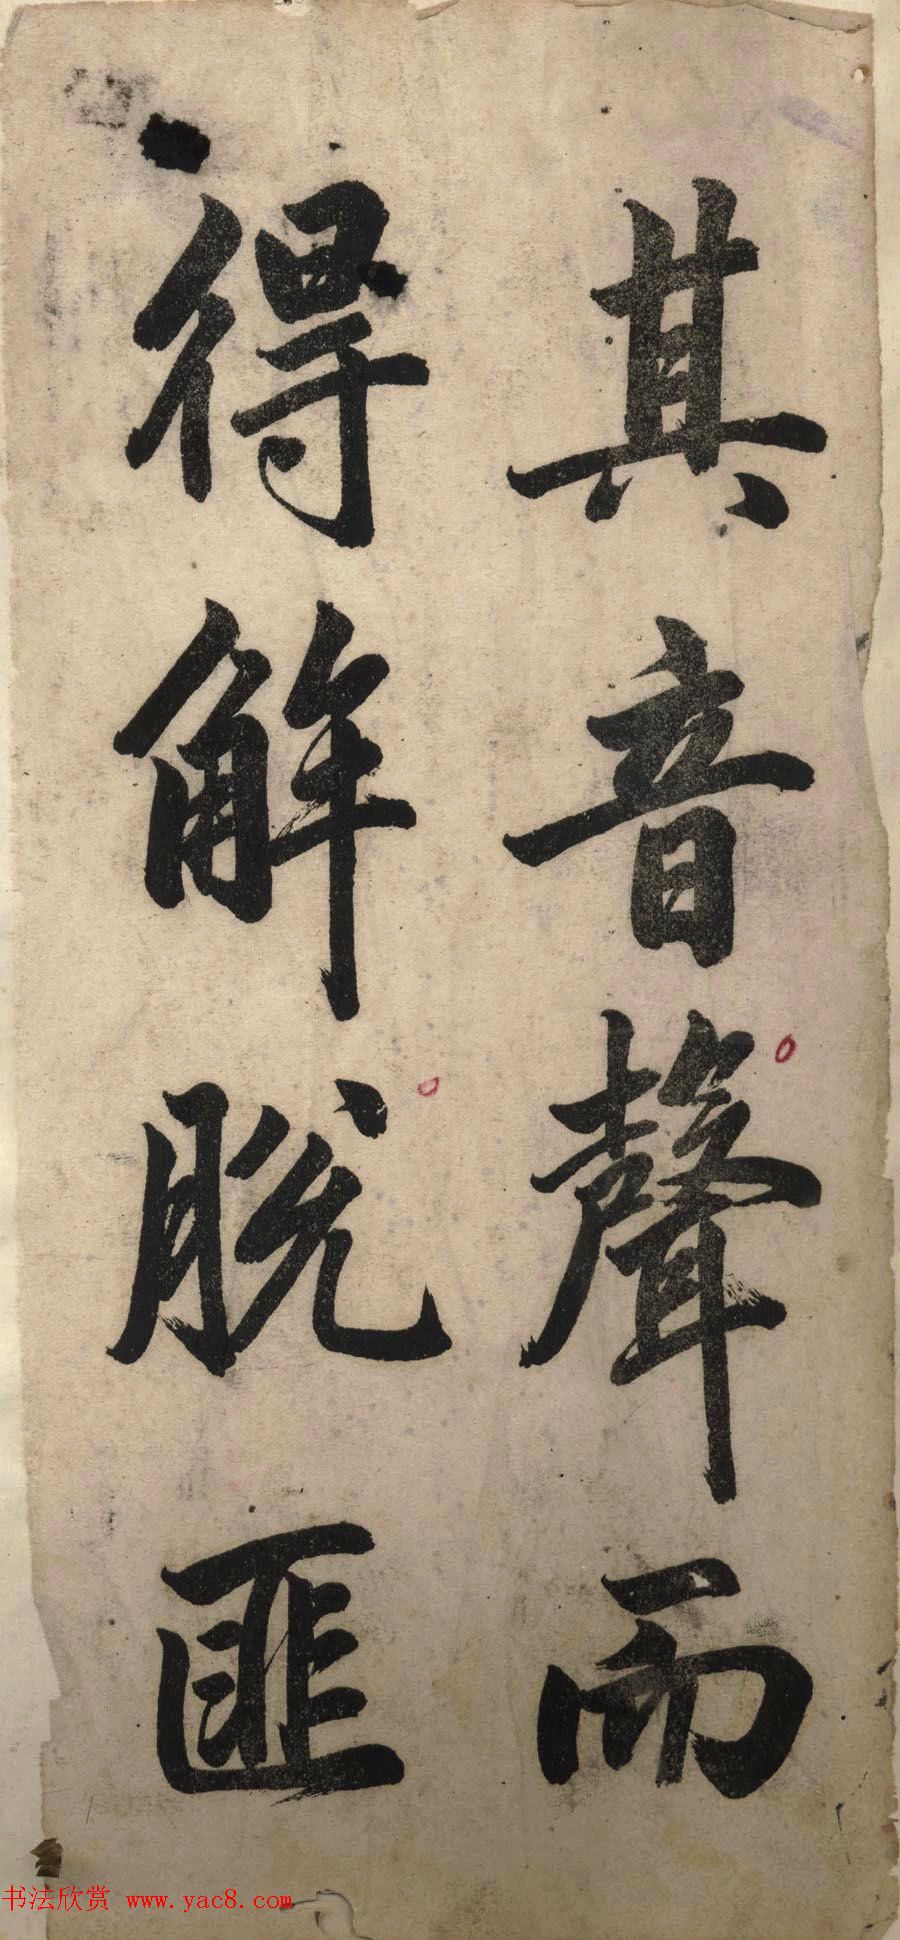 其音聲而
得解脫匪
书法欣赏 www.yac8.com